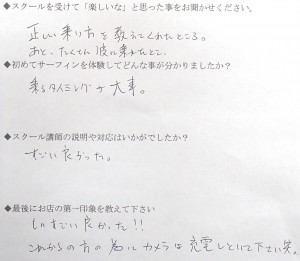 ◆スクールを受けて「楽しいな」と思った事をお聞かせください。
正しい乗り方を教えてくれたところ。
あと、たくさん波に乗れたとこ。
◆初めてサーフィンを体験してどんな事が分かりましたか？
乗るタイミングが大事。
◆スクール講師の説明や対応はいかがでしたか？
すごい良かった。
◆最後にお店の第一印象を教えて下さい
ものすごい良かった!!
これからの方の為にカメラは充電しといて下さい笑。